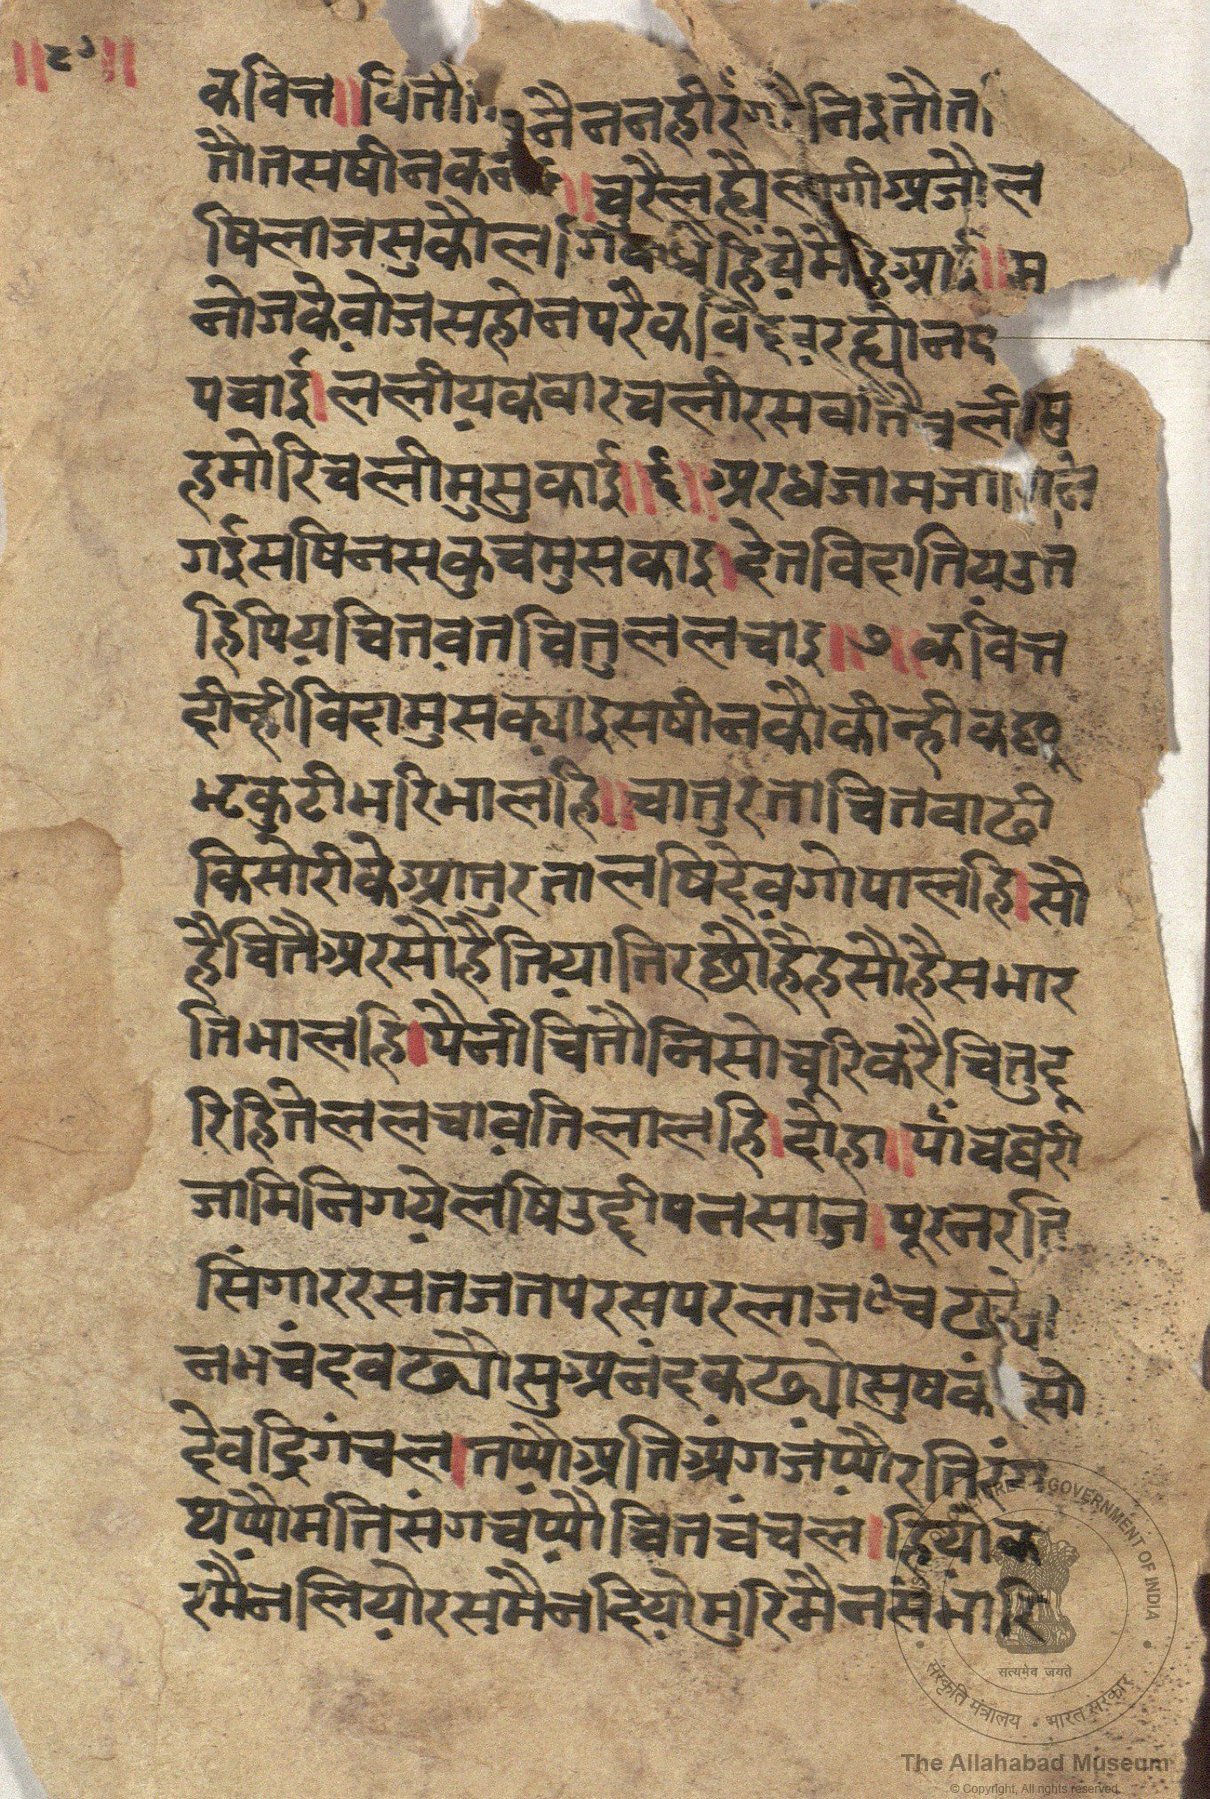 ॥८१॥
कवित्त॥चितौ नैननहीरं निइतौत
तौतसषीनक ॥चुरैलह्यौलागीअजौल
षिलाजसुकौलगि हियेमैंहिआई॥म
नोजकेवोजसहोनपरैकविदेवरह्योनद
पचाई।ललीयकवारचलीरसवातैचली मु
हमोरिचलीमुसुकाई॥६॥अरधजामजा
गईसषिनसकुचमुसकाइ।देतविदातियउत
हिपियचितवतचितुललचाइ॥७॥कवित्त
दीन्हीविदामुसक्याइसषीनकौकीन्हीकछू
भ्रकुटीभरिभालहि॥चातुरताचितवाढी
किसोरीकेआतुरतालषिदेवगोपालहि।सौ
हैचितैअरसौहैतियातिरछौहैहसौहैसभार
तिभालहि।पैनीचितौनिसोचूरिकरैचितुदू
रिहितेललचावतिलालहि।दोहा॥पांचघरी
जामिनिगयेलषिउद्दीपनसाज।पूरनरति
सिंगाररसतजतपरसपरलाज॥८॥
नभचंदवढ्यौसुअनंदकढ्योसुषकं सौ
देवद्रिगंचल।तप्यौअतिअंगजंप्यौरतिरंग
थप्यौमतिसंगचंप्यौचितचंचल।हियोक
रमैनलियोरसमैनदियोमुरिमैनसंभारि
संस्कृति मंत्रालय • भारत सरकार
GOVERNMENT OF INDIA
सत्यमेव जयते
The Allahabad Museum
© Copyright, All rights reserved.